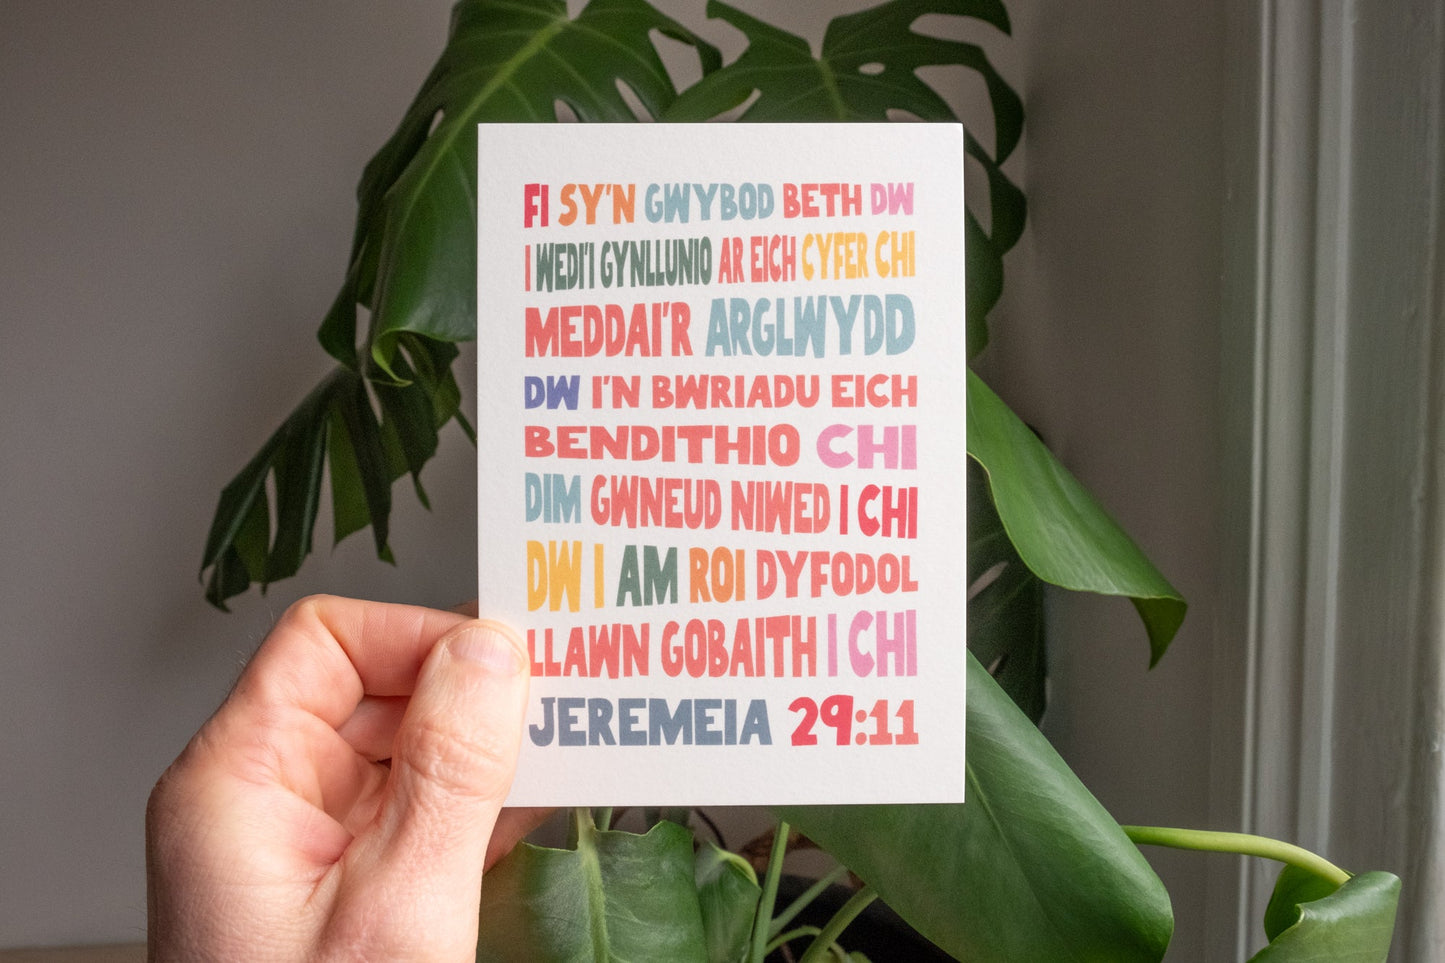 FI SY'N GWYBOD BETH DW
I WEDI'I GYNLLUNIO AR EICH CYFER CHI
MEDDAI'R ARGLWYDD
DW I'N BWRIADU EICH
BENDITHIO CHI
DIM GWNEUD NIWED I CHI
DW I AM ROI DYFODOL
LLAWN GOBAITH I CHI
JEREMEIA 29:11